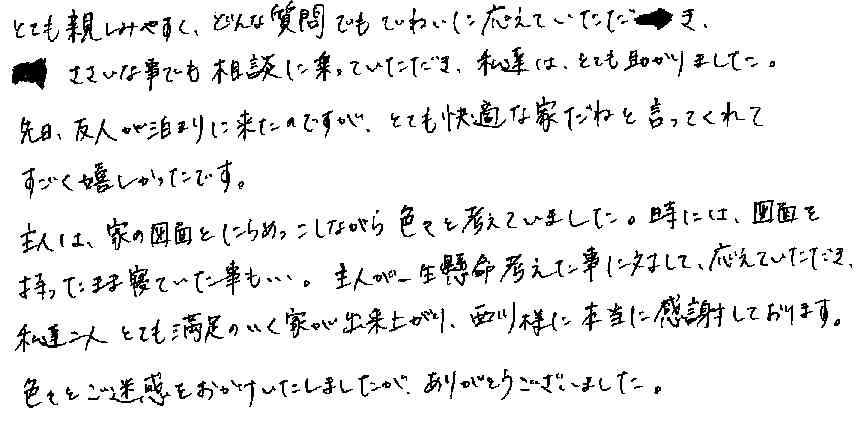 とても親しみやすく、どんな質問でもていねいに応えていただき、
ささいな事でも相談に乗っていただき、私達は、とても助かりました。
先日、友人が泊まりに来たのですが、とても快適な家だねと言ってくれて
すごく嬉しかったです。
主人は、家の図面とにらめっこしながら色々と考えていました。時には、図面を
持ったまま寝ていた事も…。主人が一生懸命考えた事に対して、応えていただき、
私達二人とても満足のいく家が出来上がり、西川様に本当に感謝しております。
色々とご迷惑をおかけいたしましたが、ありがとうございました。